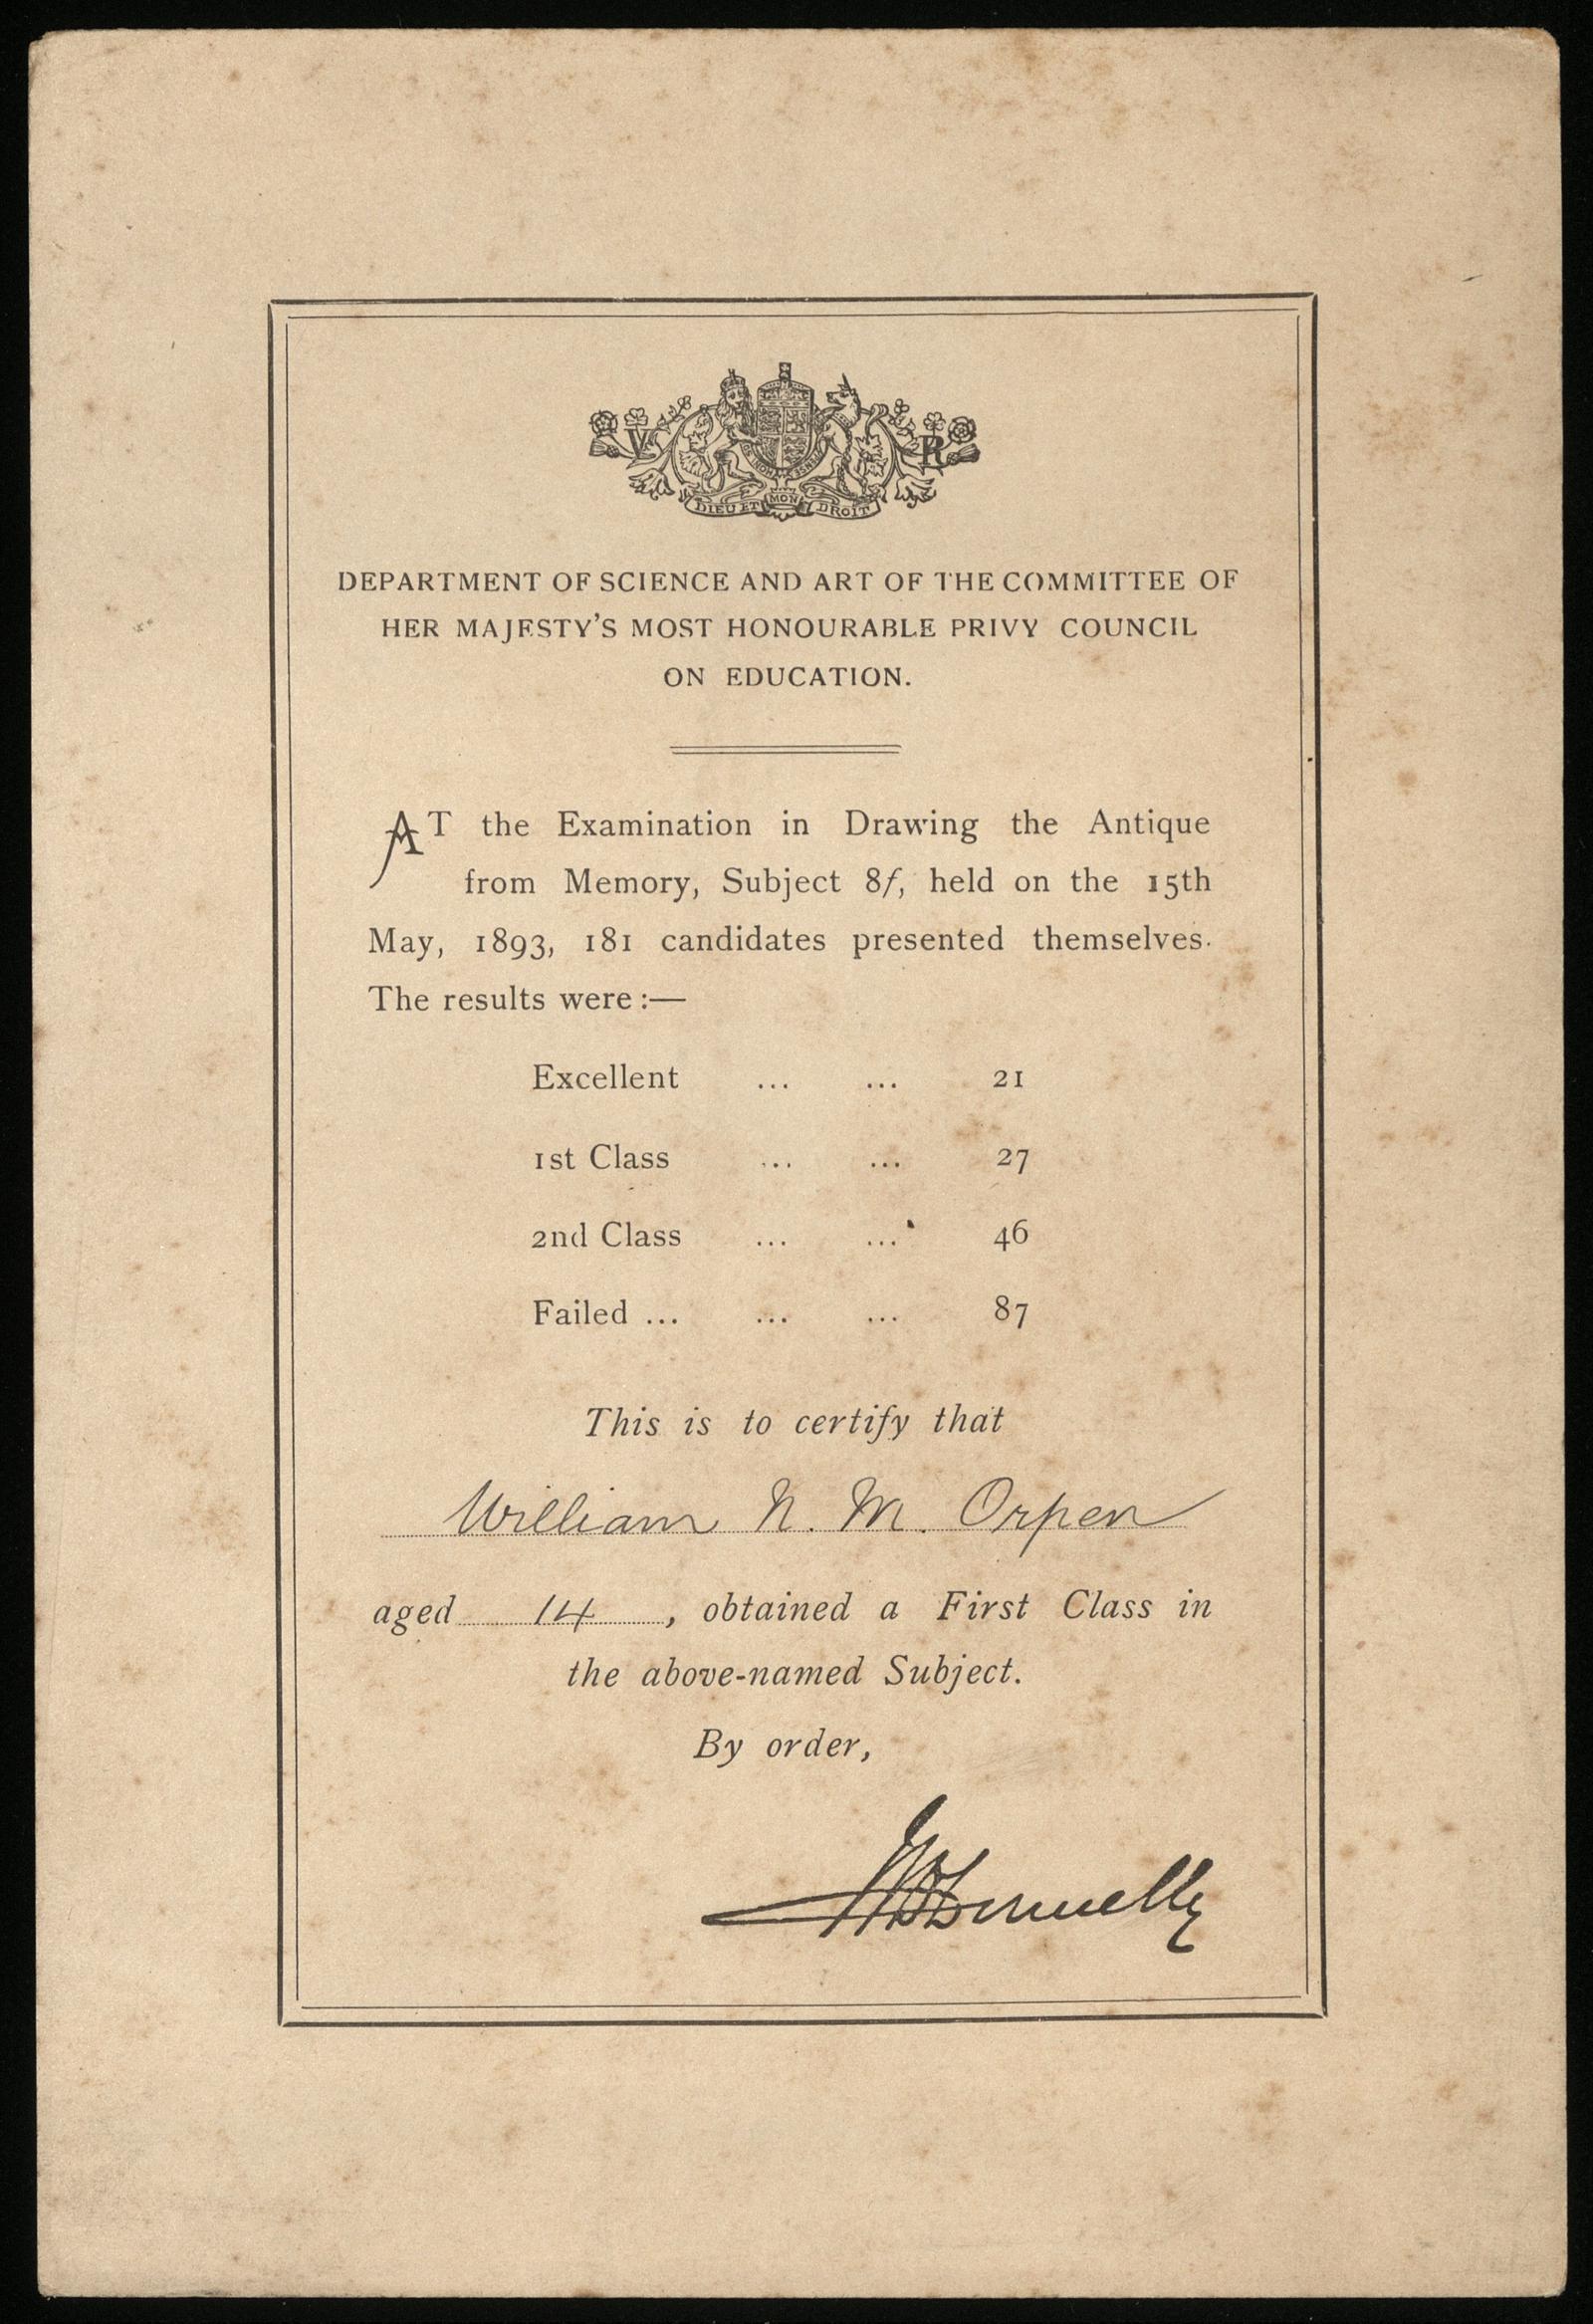 V R
DIEU ET MON DROIT
DEPARTMENT OF SCIENCE AND ART OF THE COMMITTEE OF
HER MAJESTY'S MOST HONOURABLE PRIVY COUNCIL
ON EDUCATION.
AT the Examination in Drawing the Antique
from Memory, Subject 8f, held on the 15th
May, 1893, 181 candidates presented themselves.
The results were :—
Excellent ... ... 21
1st Class ... ... 27
2nd Class ... ... 46
Failed ... ... ... 87
This is to certify that
William N. M. Orpen
aged 14, obtained a First Class in
the above-named Subject.
By order,
Donnelly